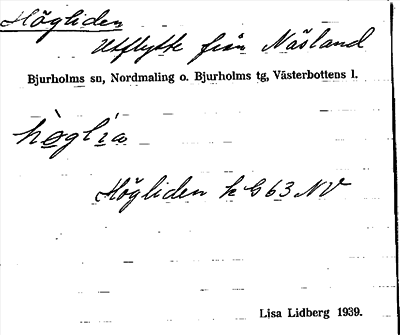 Högliden
Utflytte från Näsland
Bjurholms sn, Nordmaling o. Bjurholms tg, Västerbottens l.
hòglìa
Högliden k G63 NV
Lisa Lidberg 1939.